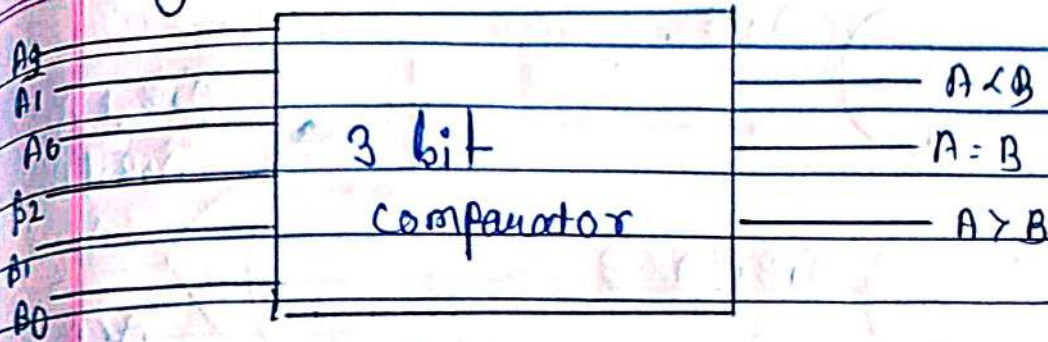 A2
A1
A0
B2
B1
B0
3 bit
comparator
A < B
A = B
A > B